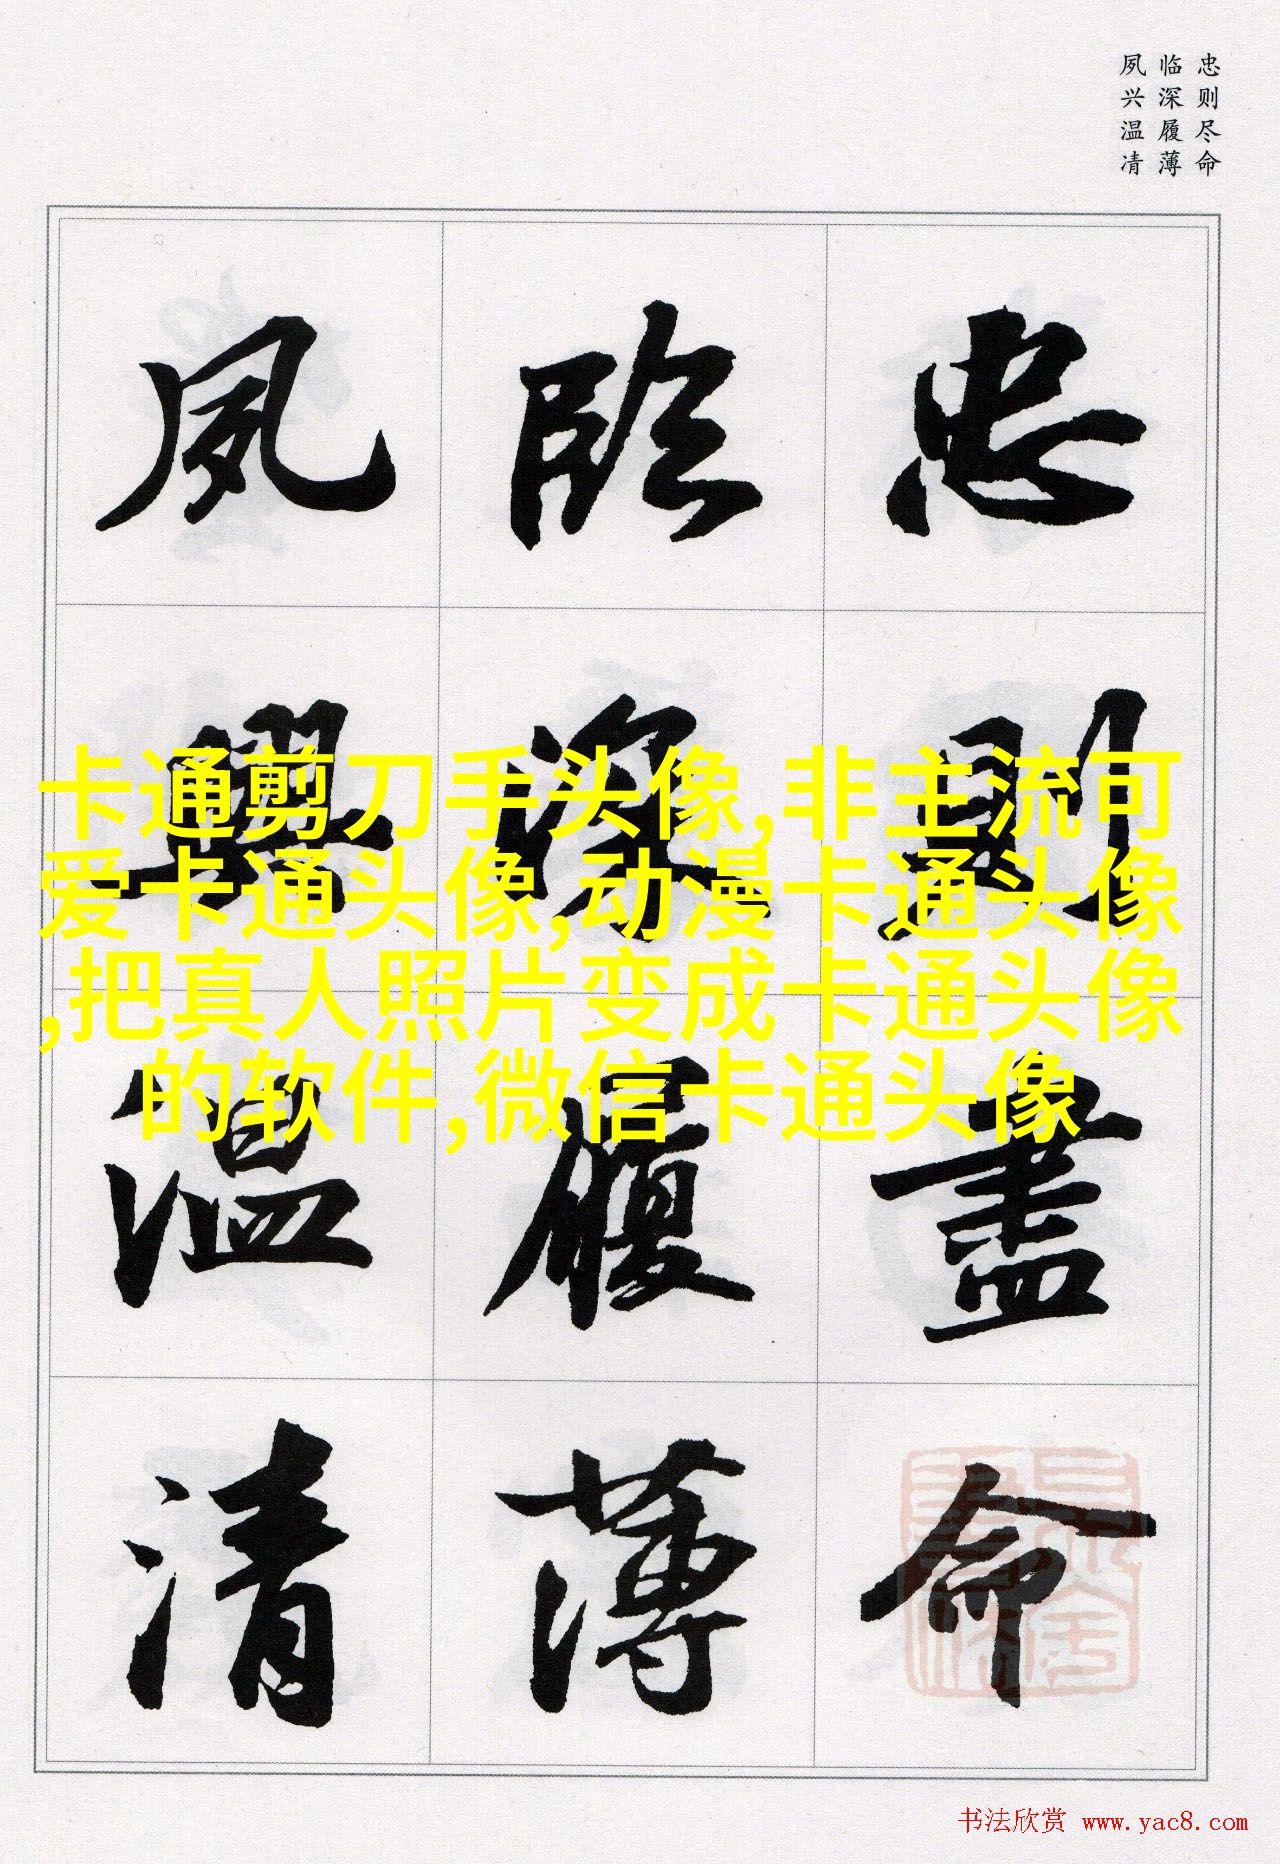 忠则尽命
临深履薄
夙兴温凊
忠則盡命
臨深履薄
夙興温清
卡通剪刀手头像,非主流可
爱卡通头像,动漫卡通头像
,把真人照片变成卡通头像
的软件,微信卡通头像
书法欣赏 www.yac8.com